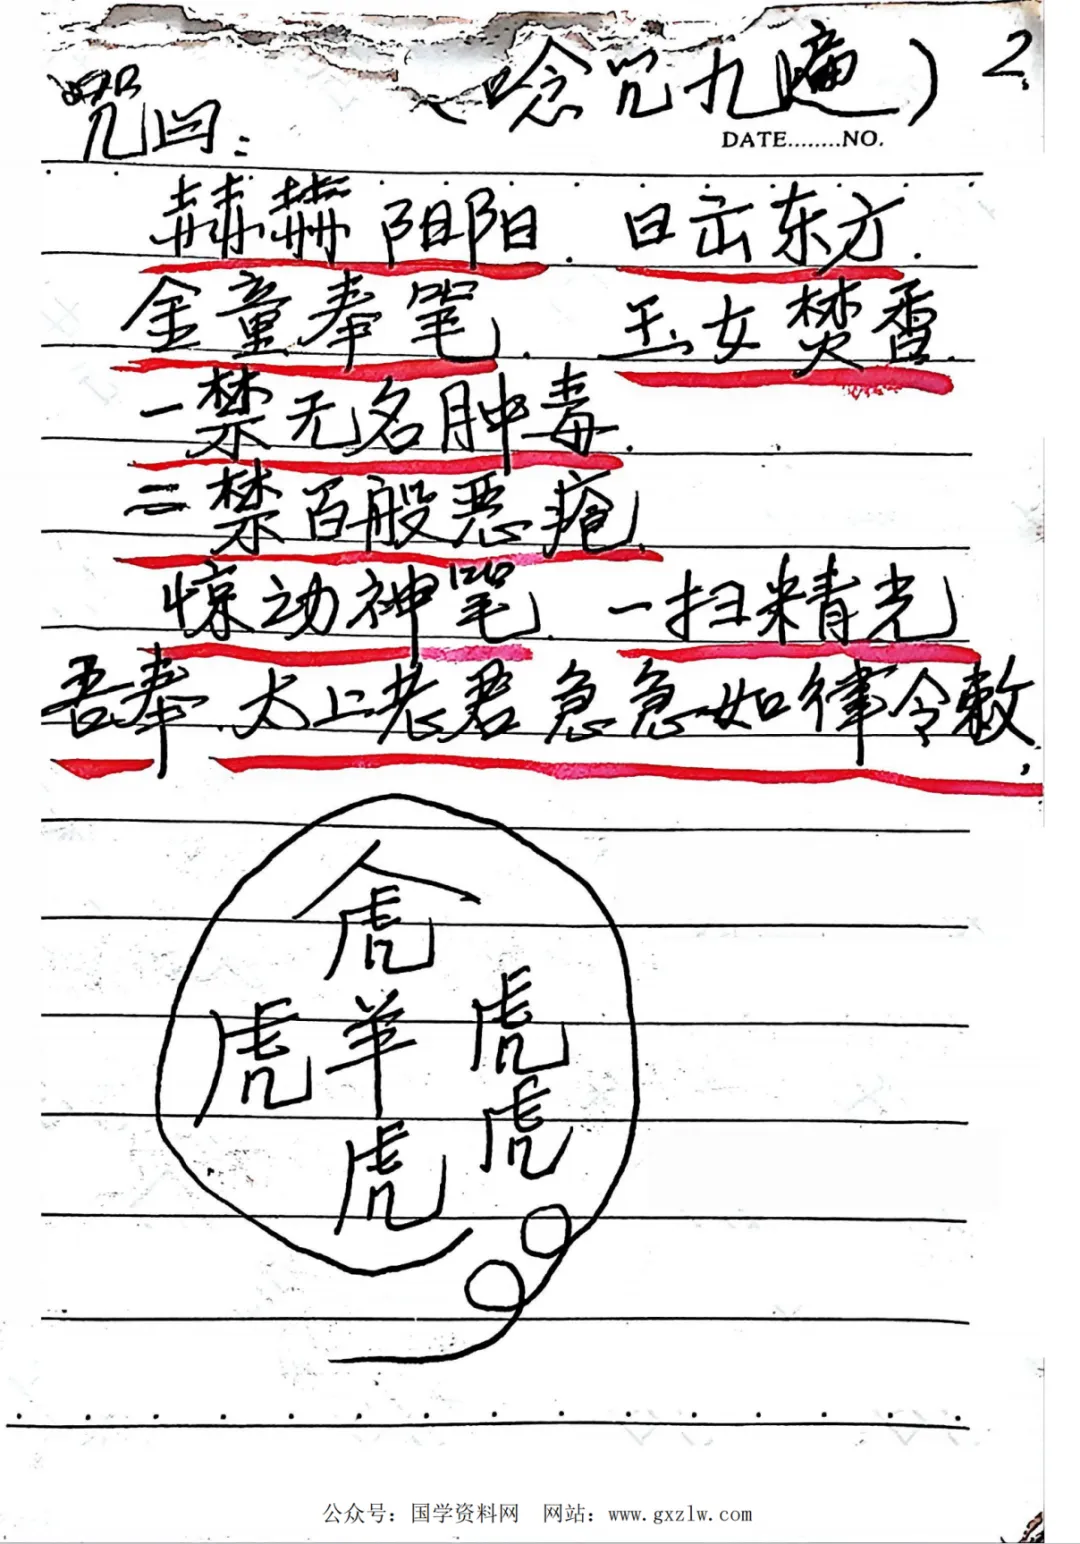 (唸咒九遍) 2.
DATE........NO.
咒曰:
赫赫阴阳. 日出东方.
金童奉笔. 玉女焚香.
一禁无名肿毒.
二禁百般恶疮.
惊动神笔. 一扫精光
吾奉.太上老君急急如律令敕,
虎
虎 羊 虎
虎
虎
公众号：国学资料网 网站：www.gxzlw.com